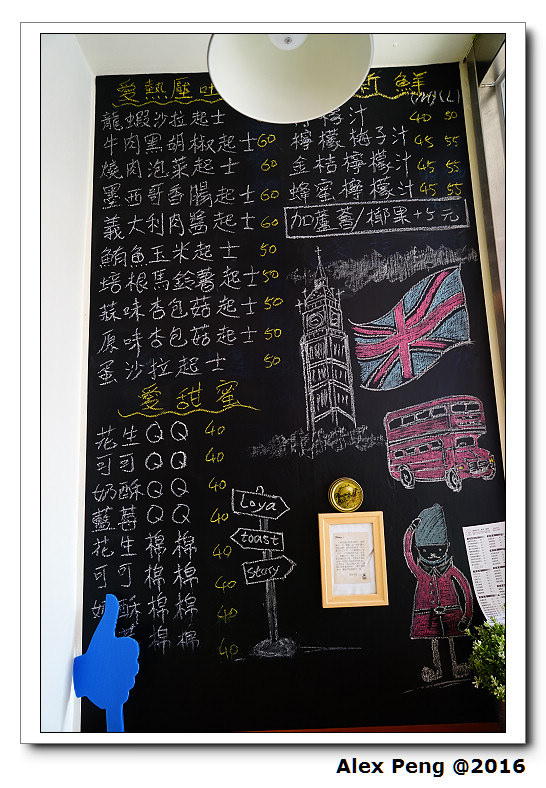 愛熱壓吐
龍蝦沙拉起士
牛肉黑胡椒起士 60
燒肉泡菜起士 60
墨西哥香腸起士 60
義大利肉醬起士 60
鮪魚玉米起士 50
培根馬鈴薯起士 50
蒜味杏包菇起士 50
原味杏包菇起士 50
蛋沙拉起士 50
愛甜蜜
花生QQ 40
可可QQ 40
奶酥QQ 40
藍莓QQ 40
花生棉棉 40
可可棉棉 40
奶酥棉棉 40
棉棉 40
新鮮
(M) (L)
檸檬汁 40 50
檸檬梅子汁 45 55
金桔檸檬汁 45 55
蜂蜜檸檬汁 45 55
加蘆薈/椰果+5元
Loya
toast
Story
Alex Peng @2016